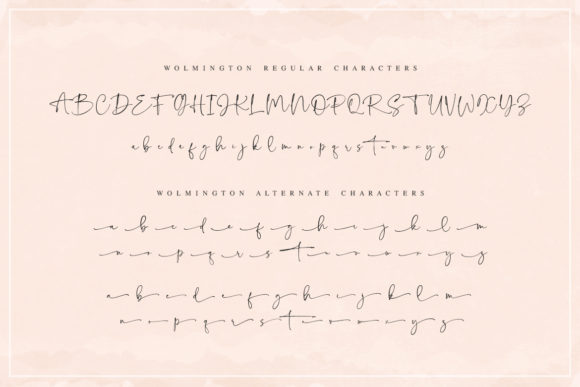 WOLMINGTON REGULAR CHARACTERS
ABCDEFGHIJKLMNOPQRSTUVWXYZ
abcdefghijklmnopqrstuvwxyz
WOLMINGTON ALTERNATE CHARACTERS
abcdefghijklm
nopqrstuvwxyz
abcdefghijklm
nopqrstuvwxyz